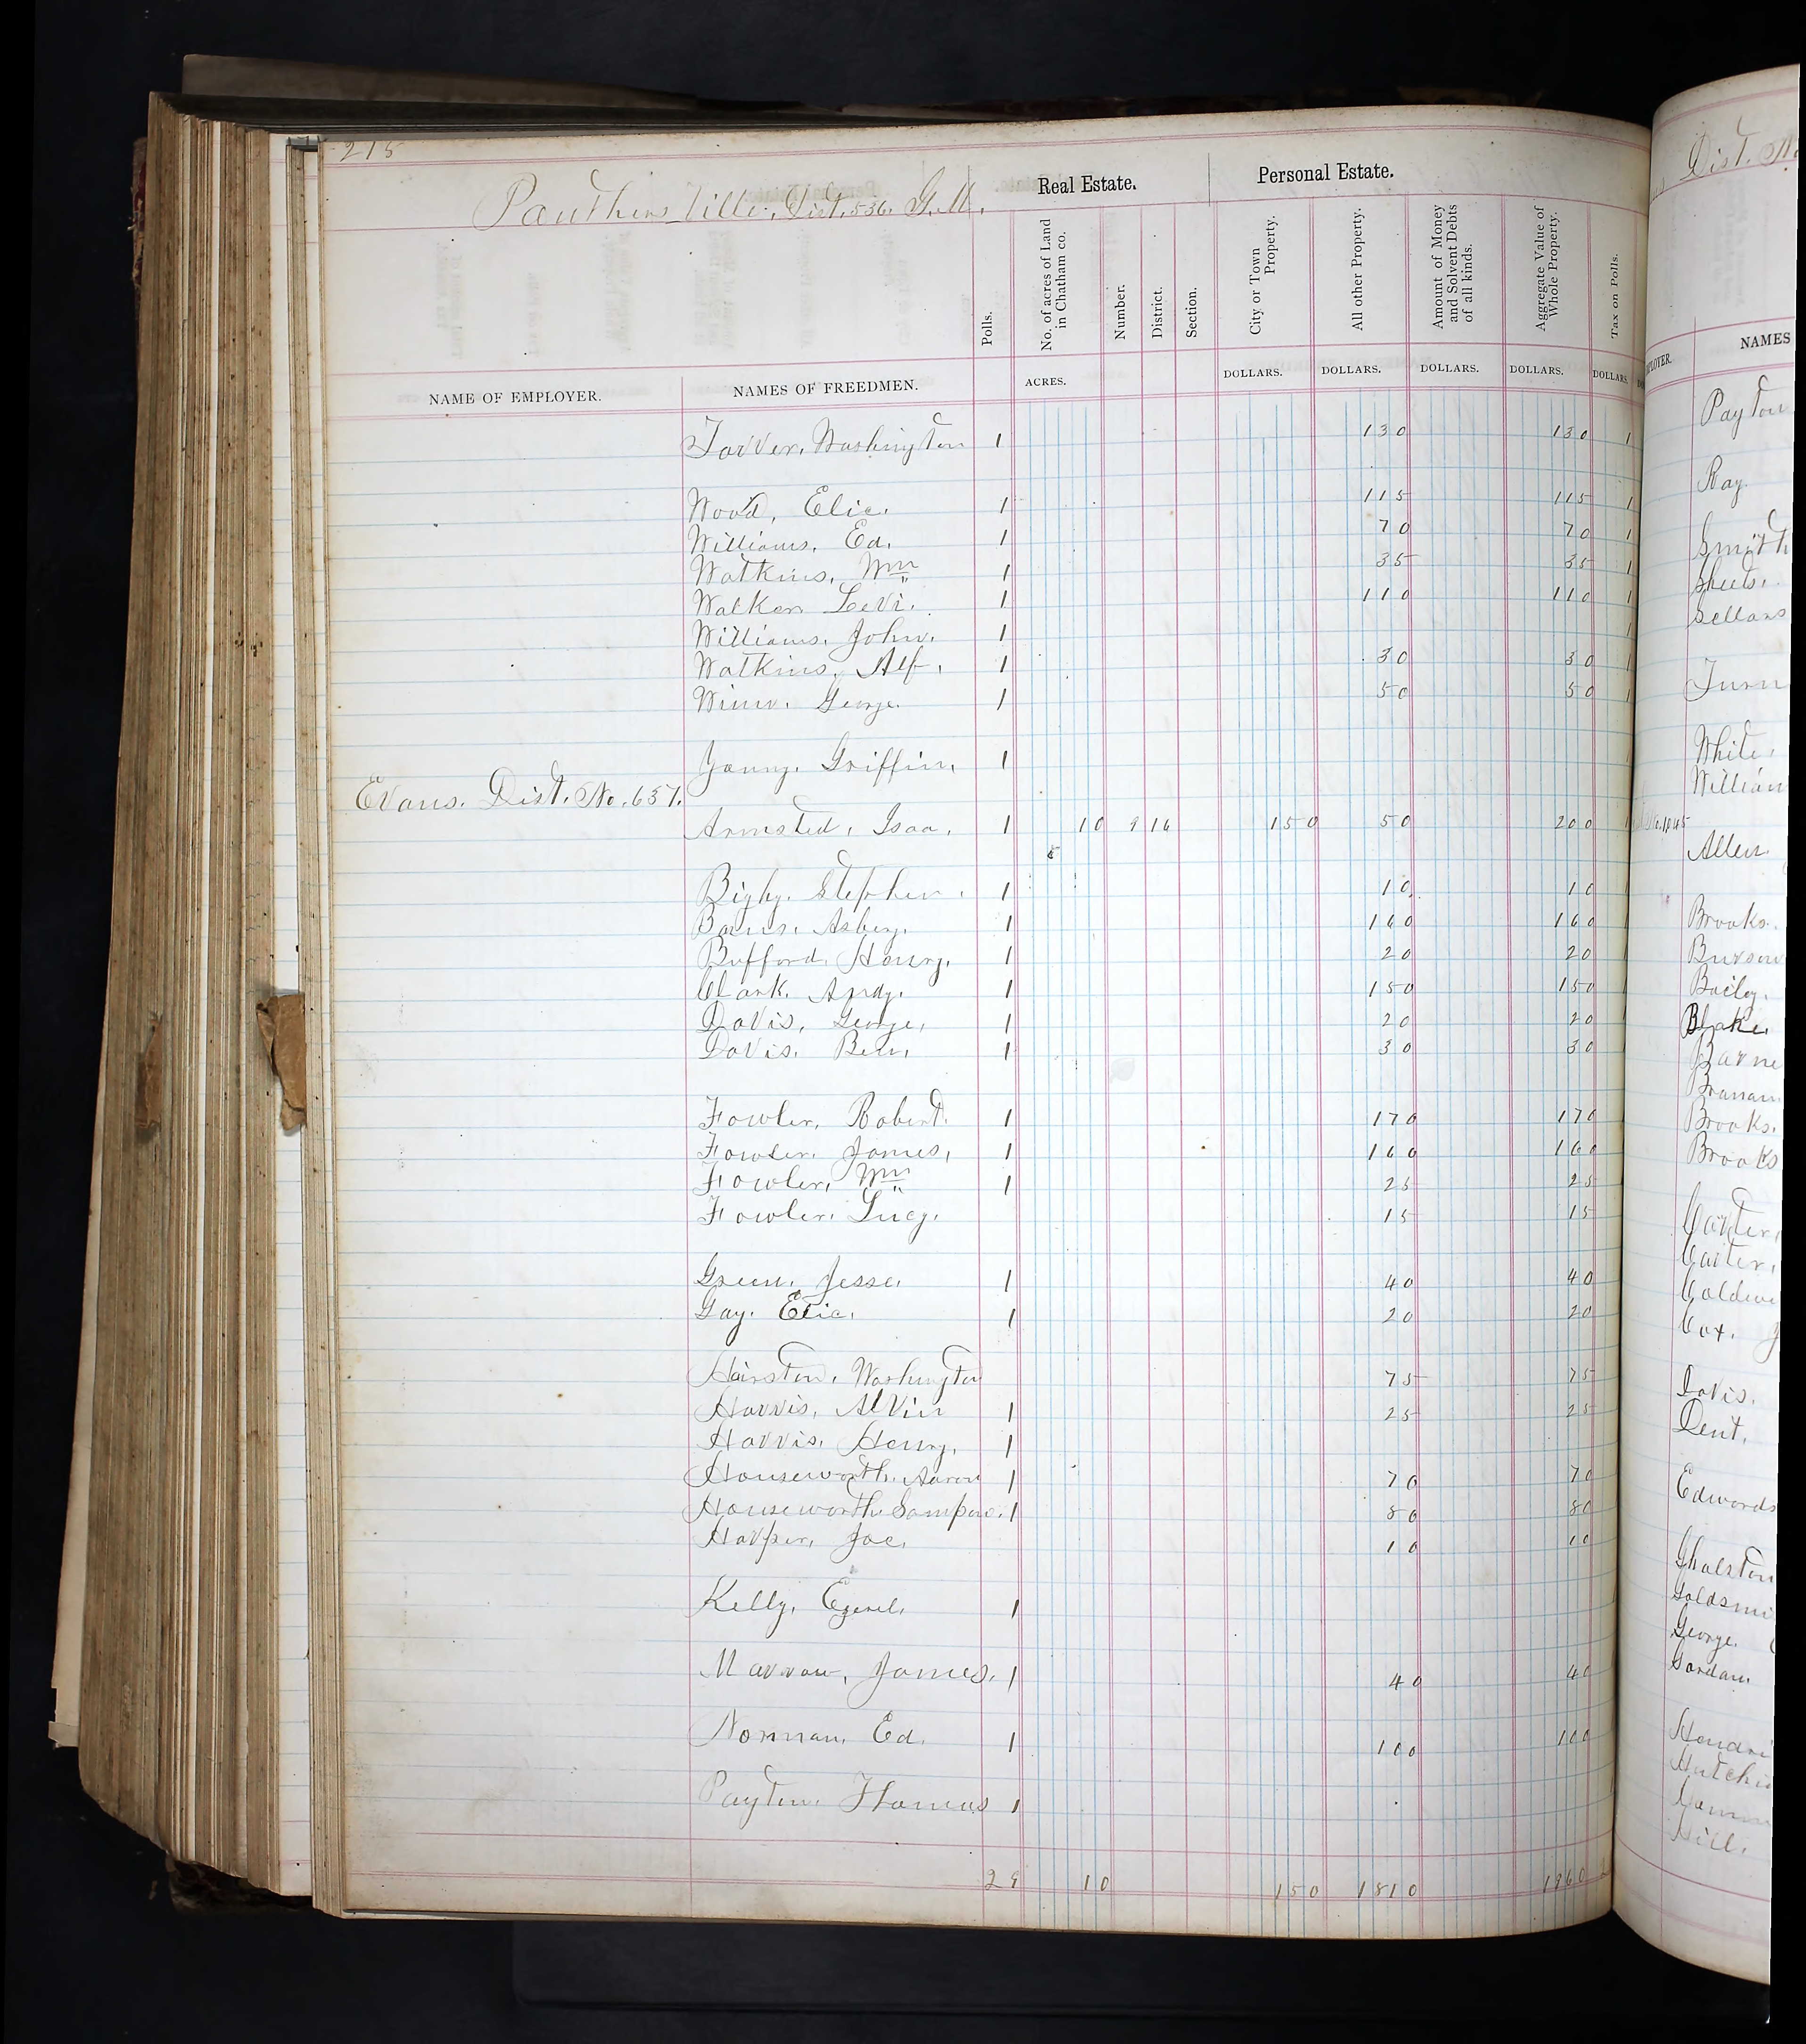 215
Panthers_Ville. Dist. 536. G. M.
Real Estate.
Personal Estate.
Polls.
No. of acres of Land in Chatham co.
Number.
District.
Section.
City or Town Property.
All other Property.
Amount of Money and Solvent Debts of all kinds.
Aggregate Value of Whole Property.
Tax on Polls.
NAME OF EMPLOYER. NAMES OF FREEDMEN. ACRES. DOLLARS. DOLLARS. DOLLARS. DOLLARS. DOLLARS.
Tarver, Washington 1 130 130 1
Wood, Elic. 1 115 115 1
Williams, Ed. 1 70 70 1
Watkins, Wm 1 35 35 1
Walker Levi. 1 110 110 1
Williams, John. 1 1
Watkins, Alf. 1 30 30 1
Winn. George. 1 50 50 1
Griffin. 1
Evans. Dist. No. 637.
Armsted, Isaa. 1 10 9 16 150 50 200 1
Bigby. Stephen. 1 10 10
Asbery. 1 160 160
Bufford, Henry. 1 20 20
Clark. Andy. 1 150 150
Davis, George, 1 20 20
Davis. Ben, 1 30 30
Fowler, Robert. 1 170 170
Fowler. James, 1 160 160
Fowler, Wm 1 25 25
Fowler. Lucy. 15 15
Green. Jesse. 1 40 40
Gay. Elic. 1 20 20
Hairston. Washington 75 75
Harris, Alvin 1 25 25
Harris. Henry. 1
Houseworth. Aaron 1 70 70
Houseworth. Sampson. 1 80 80
Harper, Joe. 10 10
Kelly. 1
Marrow, James. 1 40 40
Norman, Ed. 1 100 100
Payton. Thomas 1
29 10 150 1810 1960
Dist. No
NAMES
Payton
Ray.
Smith
Sheets.
Sellars
Turn
White,
William
Allen
Brooks.
Burson
Baily.
Blake.
Barne
Branam
Brooks.
Brooks
Carter,
Carter,
Coldwe
Cox. J
Davis.
Dent.
Edwards
Gholston
Goldsmi
George.
Gordan.
Hendri
Hutchi
Hill.